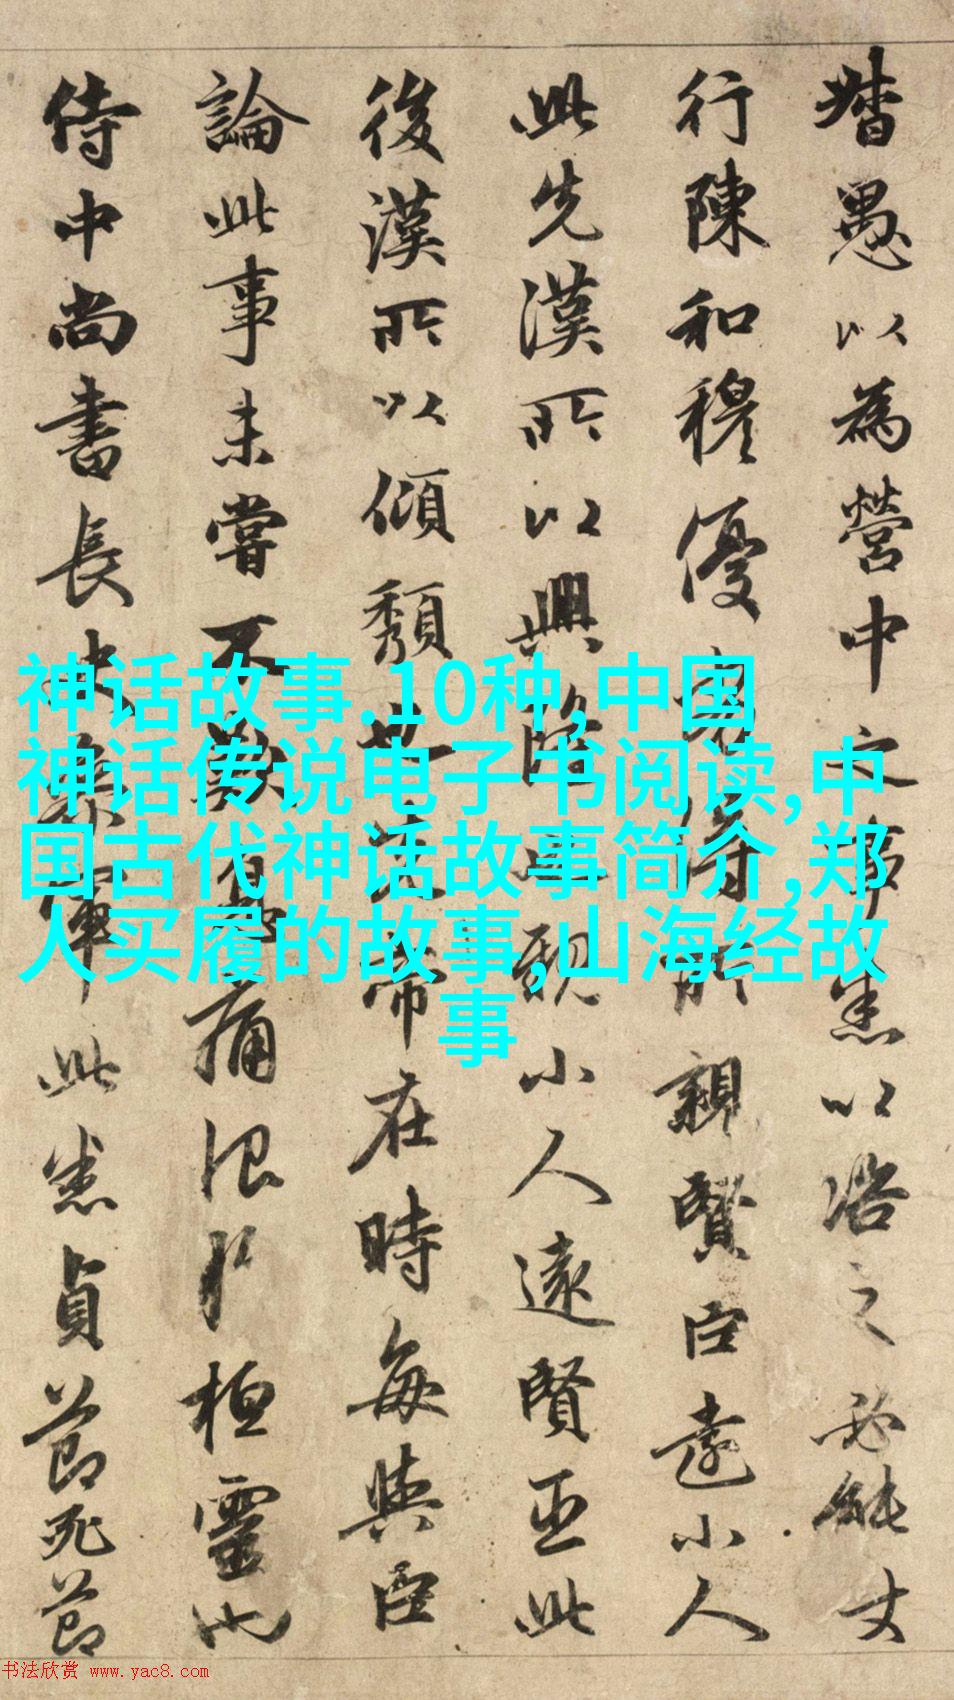 督愚以為營中之事悉以諮之必能
行陳和穆優劣得所親賢臣遠小人
此先漢所以興隆也親小人遠賢臣此
後漢所以傾頹也先帝在時每與臣
論此事未嘗不歎息痛恨於桓靈也
侍中尚書長史參軍此悉貞節死節
神话故事.10种,中国
神话传说电子书阅读,中
国古代神话故事简介,郑
人买履的故事,山海经故
事
书法欣赏 www.yac8.com